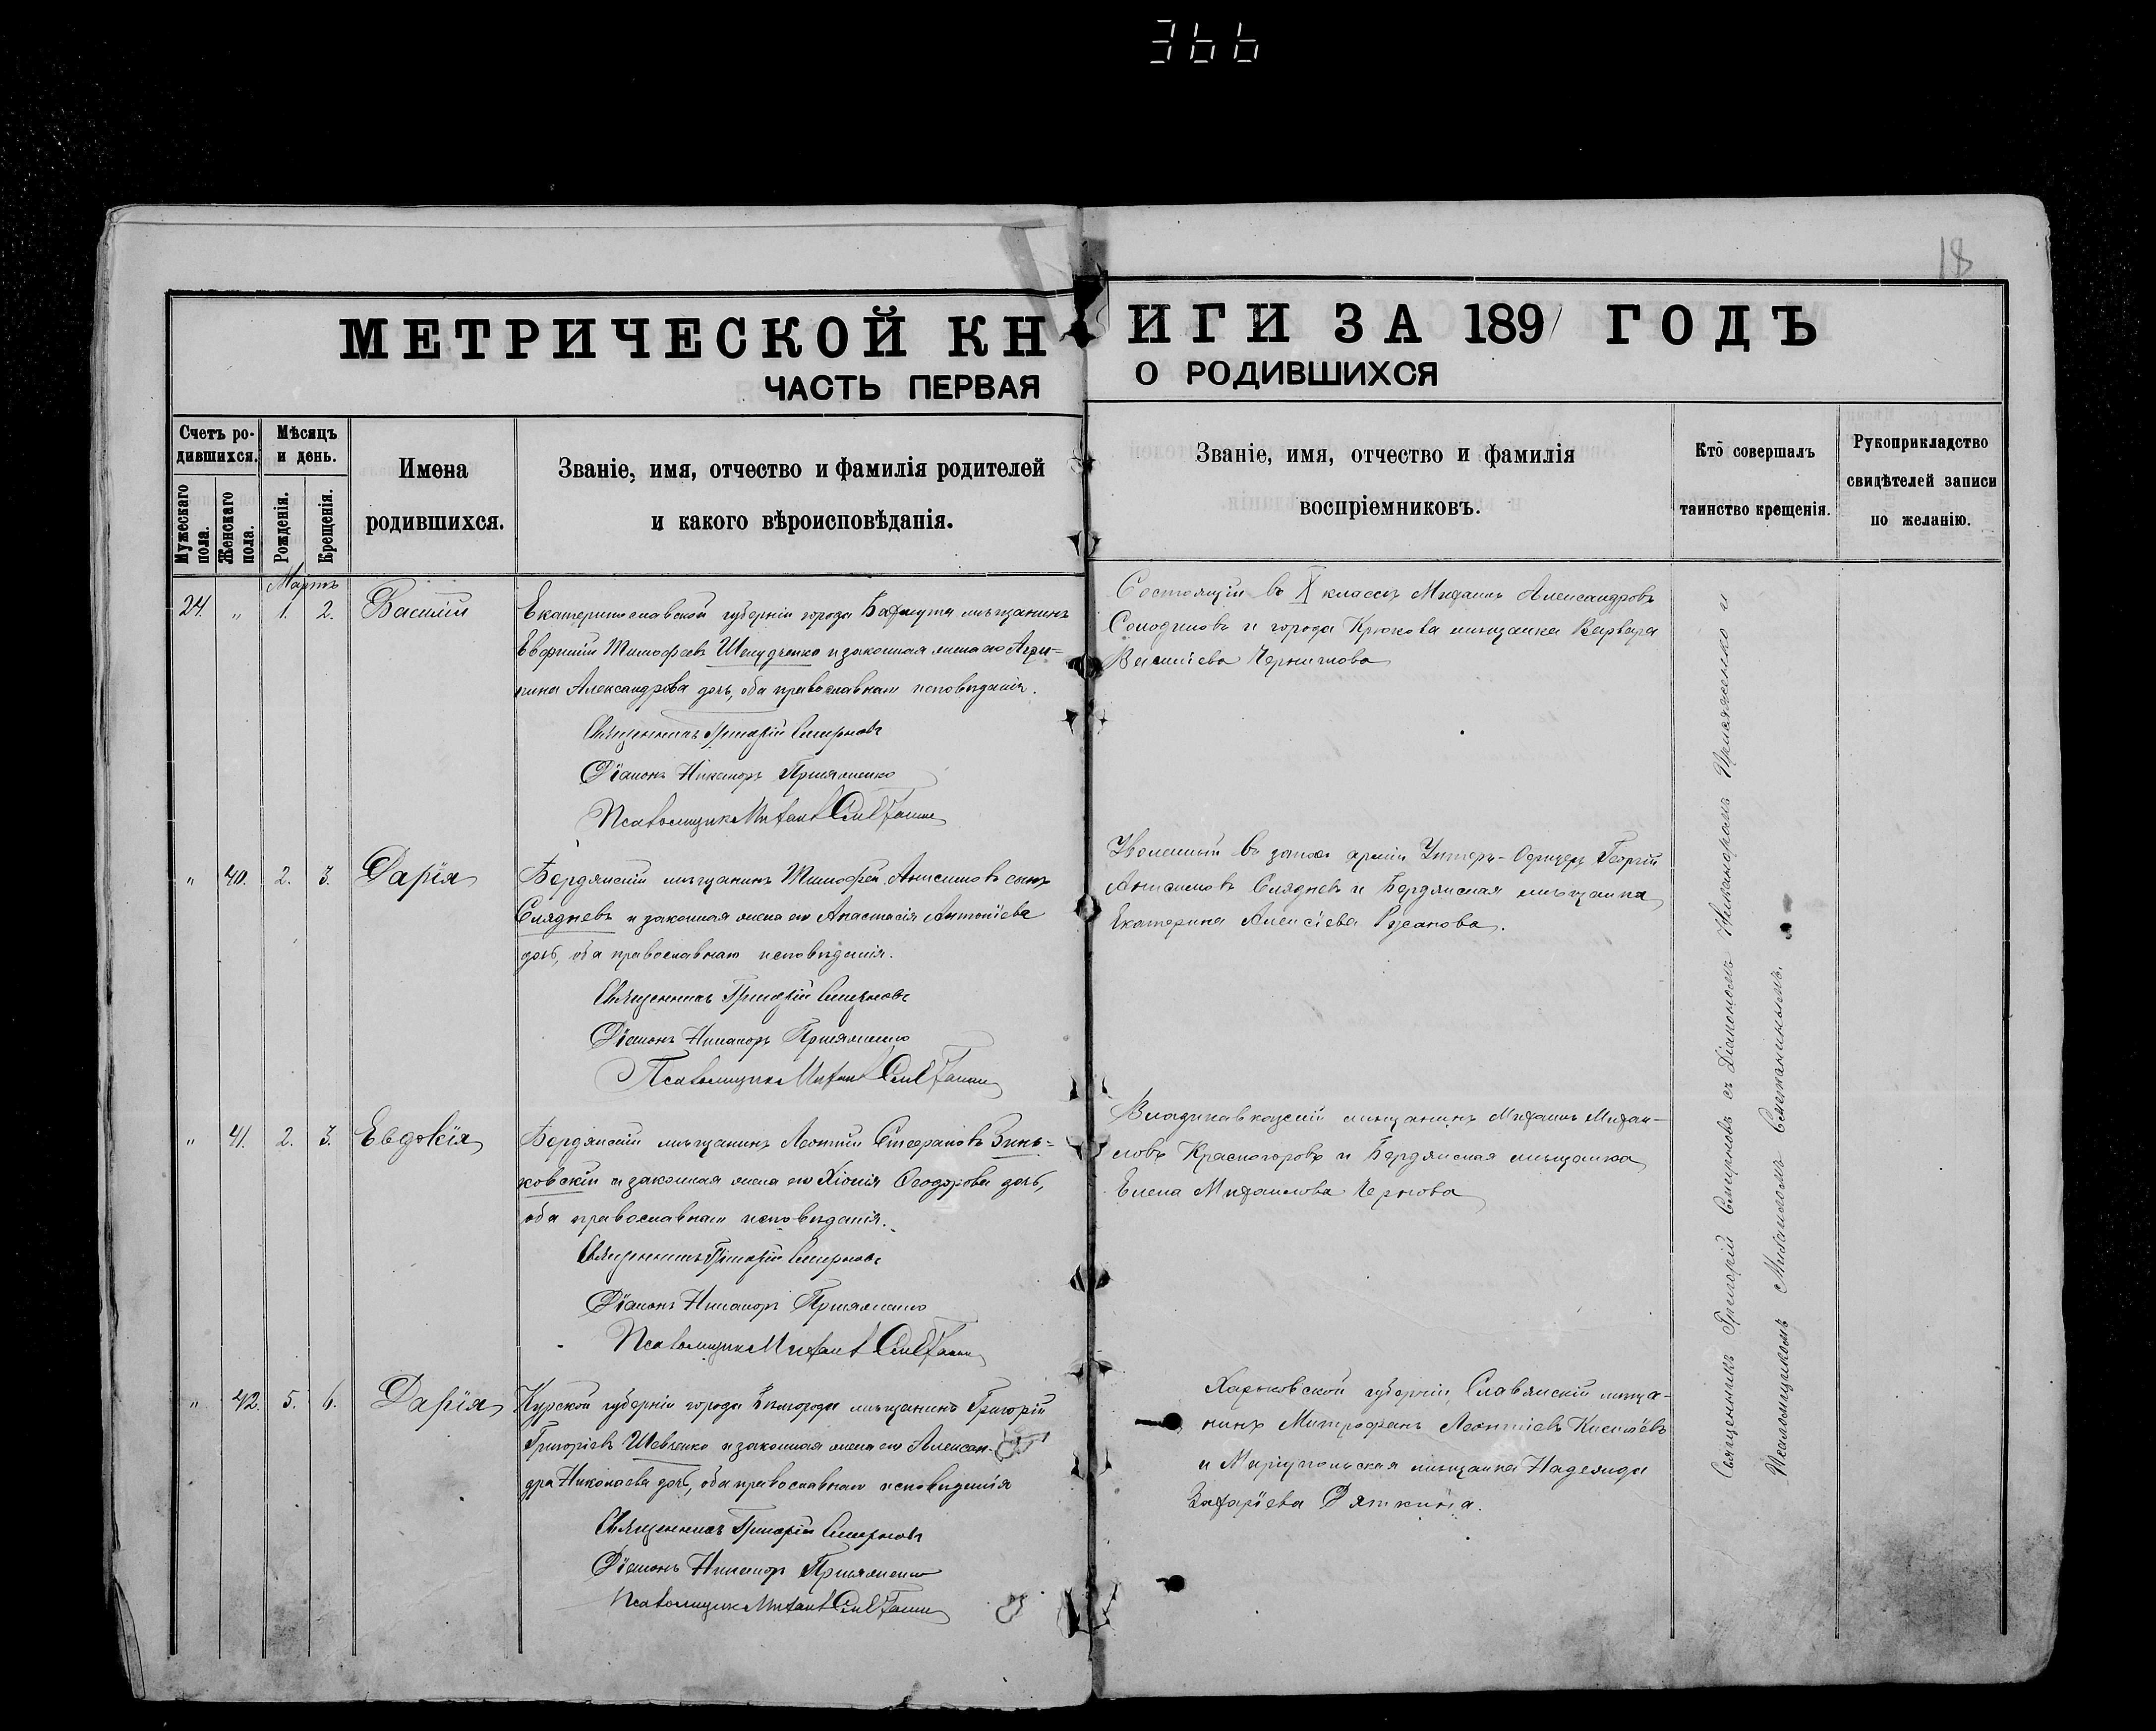 366
18
МЕТРИЧЕСКОЙ КНИГИ ЗА 1891 ГОДЪ
ЧАСТЬ ПЕРВАЯ О РОДИВШИХСЯ
Счетъ ро-
дившихся.
Мужескаго пола.
Женскаго пола.
Мѣсяцъ
и день.
Рожденія.
Крещенія.
Имена
родившихся.
Званіе, имя, отчество и фамилія родителей
и какого вѣроисповѣданія.
Званіе, имя, отчество и фамилія
воспріемниковъ.
Кто совершалъ
таинство крещенія.
Рукоприкладство
свидѣтелей записи
по желанію.
Мартъ
24. " 1. 2. Василій
Екатеринославской губерніи города Бахмута мѣщанинъ
Евфимій Тимофеевъ Шелудченко и законная жена его Агри-
пина Александрова дочь, оба православнаго исповѣданія.
Священникъ Григорій Смирновъ
Діаконъ Никаноръ Присяженко
Псаломщикъ Михаилъ
Состоящій въ X классѣ Михаилъ Александровъ
Солодиловъ и города Крюкова мѣщанка Варвара
Васильева
" 40. 2. 3. Дарія
Бердянскій мѣщанинъ Тимофей Анисимовъ сынъ
Слядневъ и законная жена его Анастасія Антоніева
дочь, оба православнаго исповѣданія.
Священникъ Григорій Смирновъ
Діаконъ Никаноръ Присяженко
Псаломщикъ Михаилъ
Уволенный въ запасъ арміи Унтеръ-Офицеръ Георгій
Анисимовъ Слядневъ и Бердянская мѣщанка
Екатерина Алексіева Русанова.
" 41. 2. 3. Евдокія
Бердянскій мѣщанинъ Леонтій Стефановъ Зинь-
ковскій и законная жена его Хіонія Ѳеодорова дочь,
оба православнаго исповѣданія.
Священникъ Григорій Смирновъ
Діаконъ Никаноръ Присяженко
Псаломщикъ Михаилъ
Владикавказскій мѣщанинъ Михаилъ Михаи-
ловъ Красногоровъ и Бердянская мѣщанка
Елена Михаилова Чернова
" 42. 5. 6. Дарія
Курской губерніи города Бѣлгорода мѣщанинъ Григорій
Григоріевъ Шевченко и законная жена его Алексан-
дра Николаева дочь, оба православнаго исповѣданія
Священникъ Григорій Смирновъ
Діаконъ Никаноръ Присяженко
Псаломщикъ Михаилъ
Харьковской губерніи, Славянскій мѣща-
нинъ Митрофанъ Леонтіевъ Киселёвъ
и Маріупольская мѣщанка Надежда
Захаріева Вяткина.
Священникъ Григорій Смирновъ съ Діакономъ Никаноромъ Присяженко и
Псаломщикомъ Михаиломъ